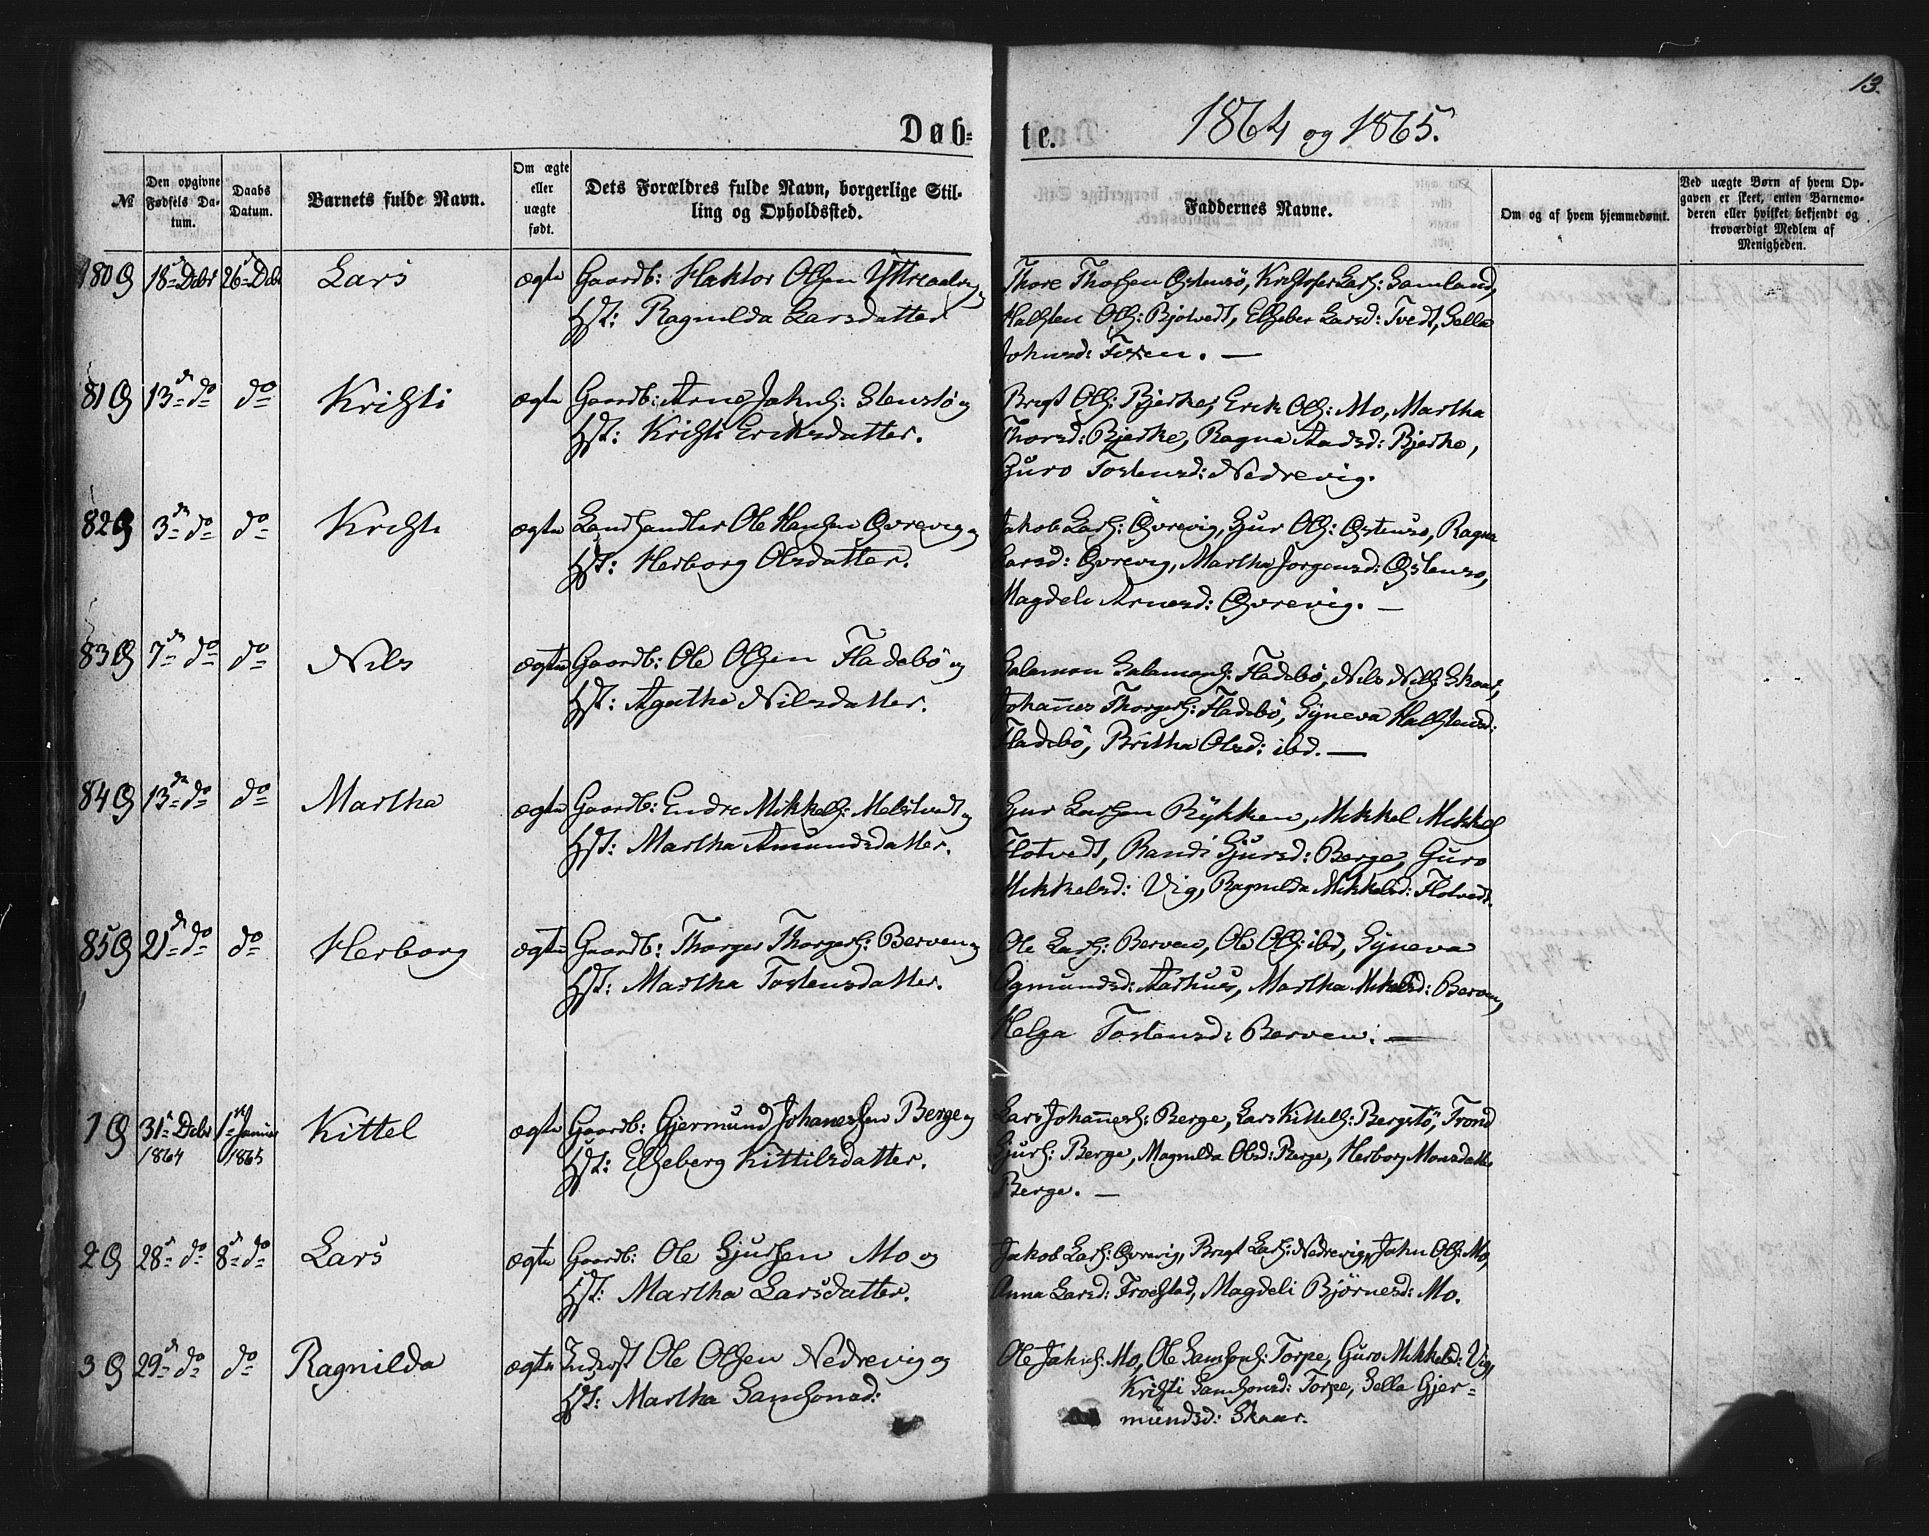 13.
Døb=
te.
1864 og 1865.
№
Den opgivne Fødsels Da-
tum.
Daabs
Datum.
Barnets fulde Navn.
Om ægte
eller
uægte
født.
Dets Forældres fulde Navn, borgerlige Stil-
ling og Opholdssted.
Faddernes Navne.
Om og af hvem hjemmedøbt.
Ved uægte Børn af hvem Op-
gaven er skeet, enten Barnemo-
deren eller hvilket bekjendt og
troværdigt Medlem af
Menigheden.
80 18 Debr 26 Debr Lars ægte Gaardb: Haktor Olsen
Hst: Ragnilda Larsdatter
Thore Thorsen Østensø, Kristofer Lars: Samland,
Halsten Ols: Bjolvedt, Elseber Larsd: Tvedt, Sella
Johnsd: Fixen. —
81 13 do do Kristi ægte Gaardb: Arne Jakobs: Stensø og
Hst: Kristi Eriksdatter.
Brigt Ols: Bjerke, Erik Ols: Mo, Martha
Thorsd: Bjerke, Ragna Aadsd: Bjerke,
Guro Tostensd: Nedrevig.
82 3 do do Kristi ægte Landhandler Ole Hansen Øvrevig og
Hst: Herborg Olsdatter.
Jakob Lars: Øvrevig, Gjur Ols: Østensø, Ragna
Larsd: Øvrevig, Martha Jørgensd: Østensø,
Magdeli Arnesd: Øvrevig. —
83 7 do do Nils ægte Gaardb: Ole Olsen Fladebø og
Hst: Agatha Nilsdatter.
Salamon Salamons: Fladebø, Nils Nils: Skaar,
Johannes Thorgers: Fladebø, Syneva Halstensd:
Fladebø, Britha Olsd: ibd. —
84 13 do do Martha ægte Gaardb: Endre Mikkels: Melstvedt og
Hst: Martha Amundsdatter.
Gjur Larsen Rykken, Mikkel Mikkels
Flotvedt, Randi Gjursd: Berge, Guro
Mikkelsd: Vig, Ragnilda Mikkelsd: Flotvedt.
85 21 do do Herborg ægte Gaardb: Thorger Thorgers: Berven og
Hst: Martha Tostensdatter.
Ole Lars: Berven, Ole Ols: ibd, Syneva
Ogmundsd: Aarhuus, Martha Mikelsd: Berven,
Helga Tostensd: Berven. —
1 31 Debr 1864 1 Januar 1865 Kittel ægte Gaardb: Gjermund Johannessen Berge og
Hst: Elseberg Kittilsdatter.
Lars Johannes: Berge, Lars Kittels: Bergstø, Trond
Gjurs: Berge, Magnilda Olsd: Berge, Herborg Monsdatter
Berge. —
2 28 do 8 do Lars ægte Gaardb: Ole Gjursen Mo og
Hst: Martha Larsdatter.
Jakob Lars: Øvrevig, Brigt Lars: Nedrevig, John Ols: Mo,
Anna Larsd: Froestad, Magdeli Bjørnesd: Mo.
3 29 do do Ragnilda ægte Inderst Ole Olsen Nedrevig og
Hst: Martha Samsonsd:
Ole Jakobs: Mo, Ole Samsons: Torpe, Guro Mikkelsd: Vig,
Kristi Samsonsd: Torpe, Sella Gjer=
mundsd: Skaar.